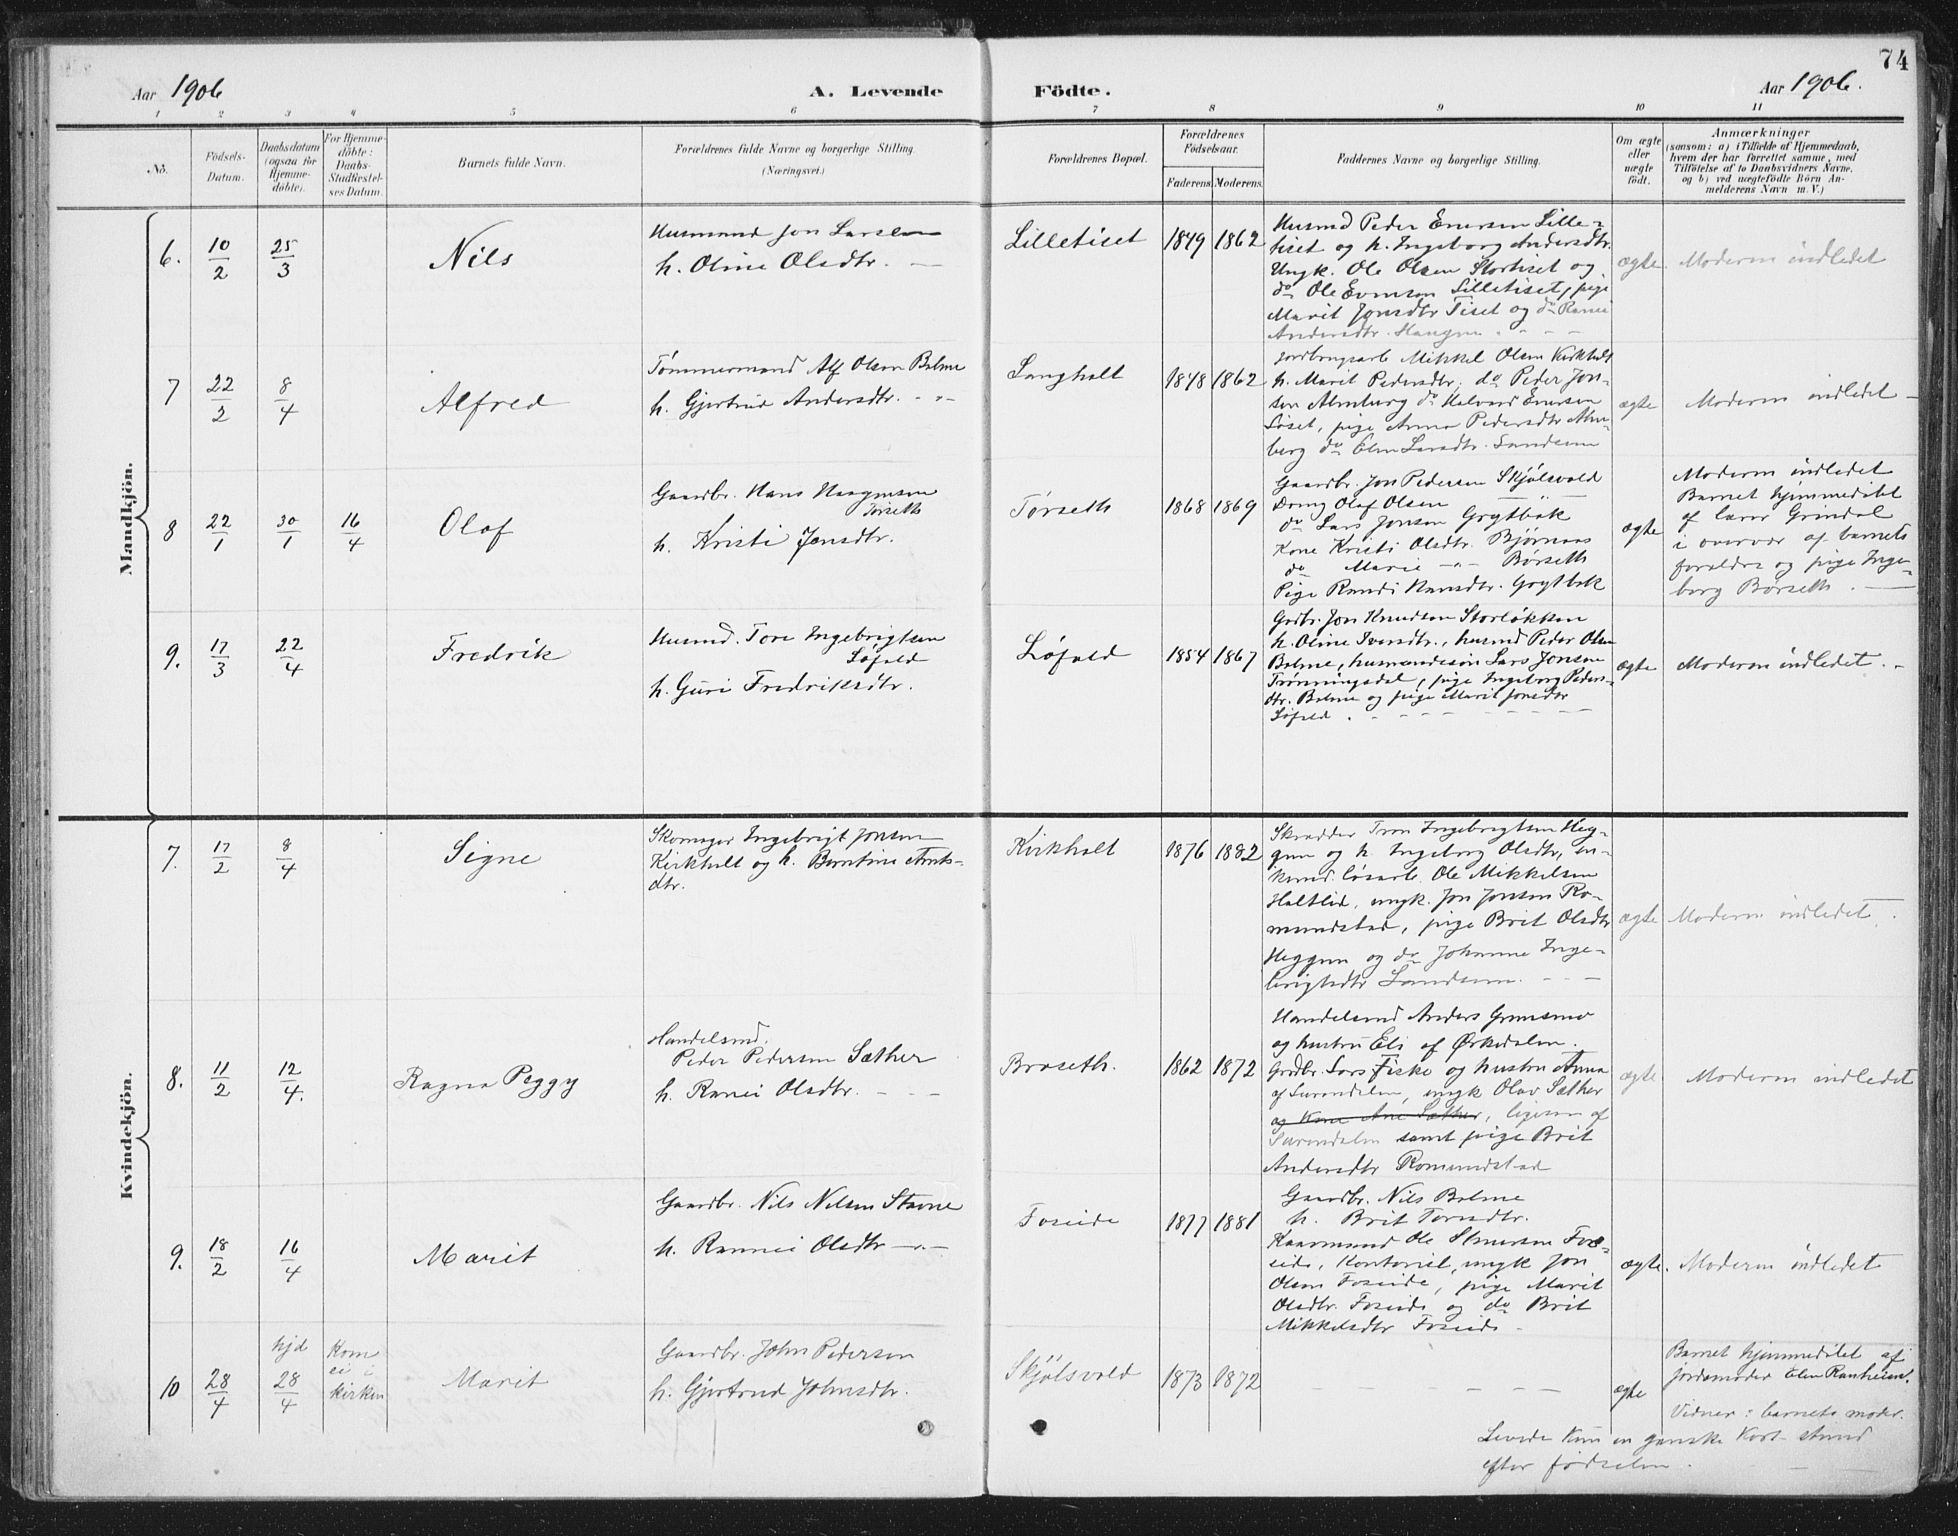 74
Aar 1906
A. Levende Födte.
Aar 1906.
1 2 3 4 5 6 7 8 9 10 11
No.
Födsels-Datum.
Daabsdatum (ogsaa for Hjemmedöbte).
For Hjemmedöbte: Daabs-Stadfæstelses Datum.
Barnets fulde Navn.
Forældrenes fulde Navne og borgerlige Stilling.
(Næringsvei.)
Forældrenes Bopæl.
Forældrenes Födselsaar.
Faderens. Moderens.
Faddernes Navne og borgerlige Stilling.
Om ægte eller uægte födt.
Anmærkninger
(saasom: a) i Tilfælde af Hjemmedaab,
hvem der har forrettet samme, med
Tilföielse af to Daabsvidners Navne,
og b) ved uægtefödte Börn An-
melderens Navn m. V.)
Mandkjön.
6. 10/2 25/3 Nils
Husmand Jon Larsen
h. Oline Olsdtr. —
Lilletiset 1849 1862
Husmd Peder Evensen Lille-
tiset og h. Ingeborg Andersdtr.
Ungk. Ole Olsen Stortiset og
do Ole Evensen Lilletiset, pige
Marit Jonsdtr Tiset og do Rannei
Andersdtr. Haugen
ægte. Moderen indledet
7 22/2 8/4 Alfred
Tømmermand Alf Olsen Bolme
h. Gjertrud Andersdtr. - " -
Langholt 1848 1862
Jordbrugsarb Mikkel Olsen Kirkholt
h. Marit Pedersdtr. do Peder Jon-
sen Almberg do Halvard Evensen
Løset, pige Anna Pedersdtr Alm-
berg do Elen Larsdtr. Landsem
ægte Moderen indledet —
8 22/1 30/1 16/4 Olaf
Gaardbr. Hans Haagensen
Tørseth
h. Kristi Jonsdtr.
Tørseth 1868 1869
Gaardbr. Jon Pedersen Skjølsvold
Dreng Olaf Olsen — " —
do Lars Jonsen Grytbak
Kone Kristi Olsdtr. Bjørnaas
do Marie - " - Børseth
Pige Randi Hansdtr. Grytbak
ægte
Moderen indledet
Barnet hjemmedøbt
af lærer Grindal
i overvær af barnets
forældre og pige Inge-
borg Børseth. —
9. 17/3 22/4 Fredrik
Husmd. Tore Ingebrigtsen
Løfald
h. Guri Fredriksdtr.
Løfald 1854 1867
Grdbr. Jon Knudsen Storløkken
h. Oline Iversdtr., husmd Peder Olsen
Bolme, husmandssøn Lars Jonsen
Trønningsdal, pige Ingeborg Peders-
dtr. Bolme og pige Marit Jonsdtr
Løfald.
ægte Moderen indledet. -
Kvindekjön.
7. 17/2 8/4 Signe
Skomager Ingebrigt Jonsen
Kirkholt og h. Berntine Arnts-
dtr.
Kirkholt 1876 1882
Skrædder Tron Ingebrigtsen Heg-
gem og h. Ingeborg Olsdtr, en-
kemd. løsarb. Ole Mikkelsen
Holtlid, ungk. Jon Jonsen Ro-
mundstad, pige Brit Olsdtr
Heggem og do Johanna Inge-
brigtsdtr Landsem.
ægte Moderen indledet.
8. 11/2 12/4. Ragna Peggy
Handelsmd.
Peder Pedersen Sæther
h. Rannei Olsdtr.
Broseth. 1862 1872
Handelsmd Anders Grimsmo
og hustru Eli af Ørkedalen.
Grdbr. Lars Fiske og hustru Anna
af Surendalen, ungk Olav Sæther
og Kone Ane Sæther, ligesom af
Surendalen samt pige Brit
Andersdtr Romundstad
ægte. Moderen indledet
9. 18/2 16/4 Marit
Gaardbr. Nils Nilsen Stavne
h. Rannei Olsdtr — " —
Foseide 1877 1881
Gaardbr. Nils Bolme
h. Brit Toresdtr.
Kaarmand Ole Fos-
eide, ungk Jon
Olsen Foseide, pige Marit
Olsdtr. Foseide og do Brit
Mikkelsdtr Foseide.
ægte. Moderen indledet
10 28/4 hjd 28/4 Kom ei i kirken Marit
Gaardbr. John Pedersen
h. Gjertrud Johnsdtr.
Skjølsvold 1873 1872
ægte
Barnet hjemmedøbt af
jordemoder Elen Ranheim.
Vidner: barnets moder.
Levede kun en ganske kort stund
efter fødselen.